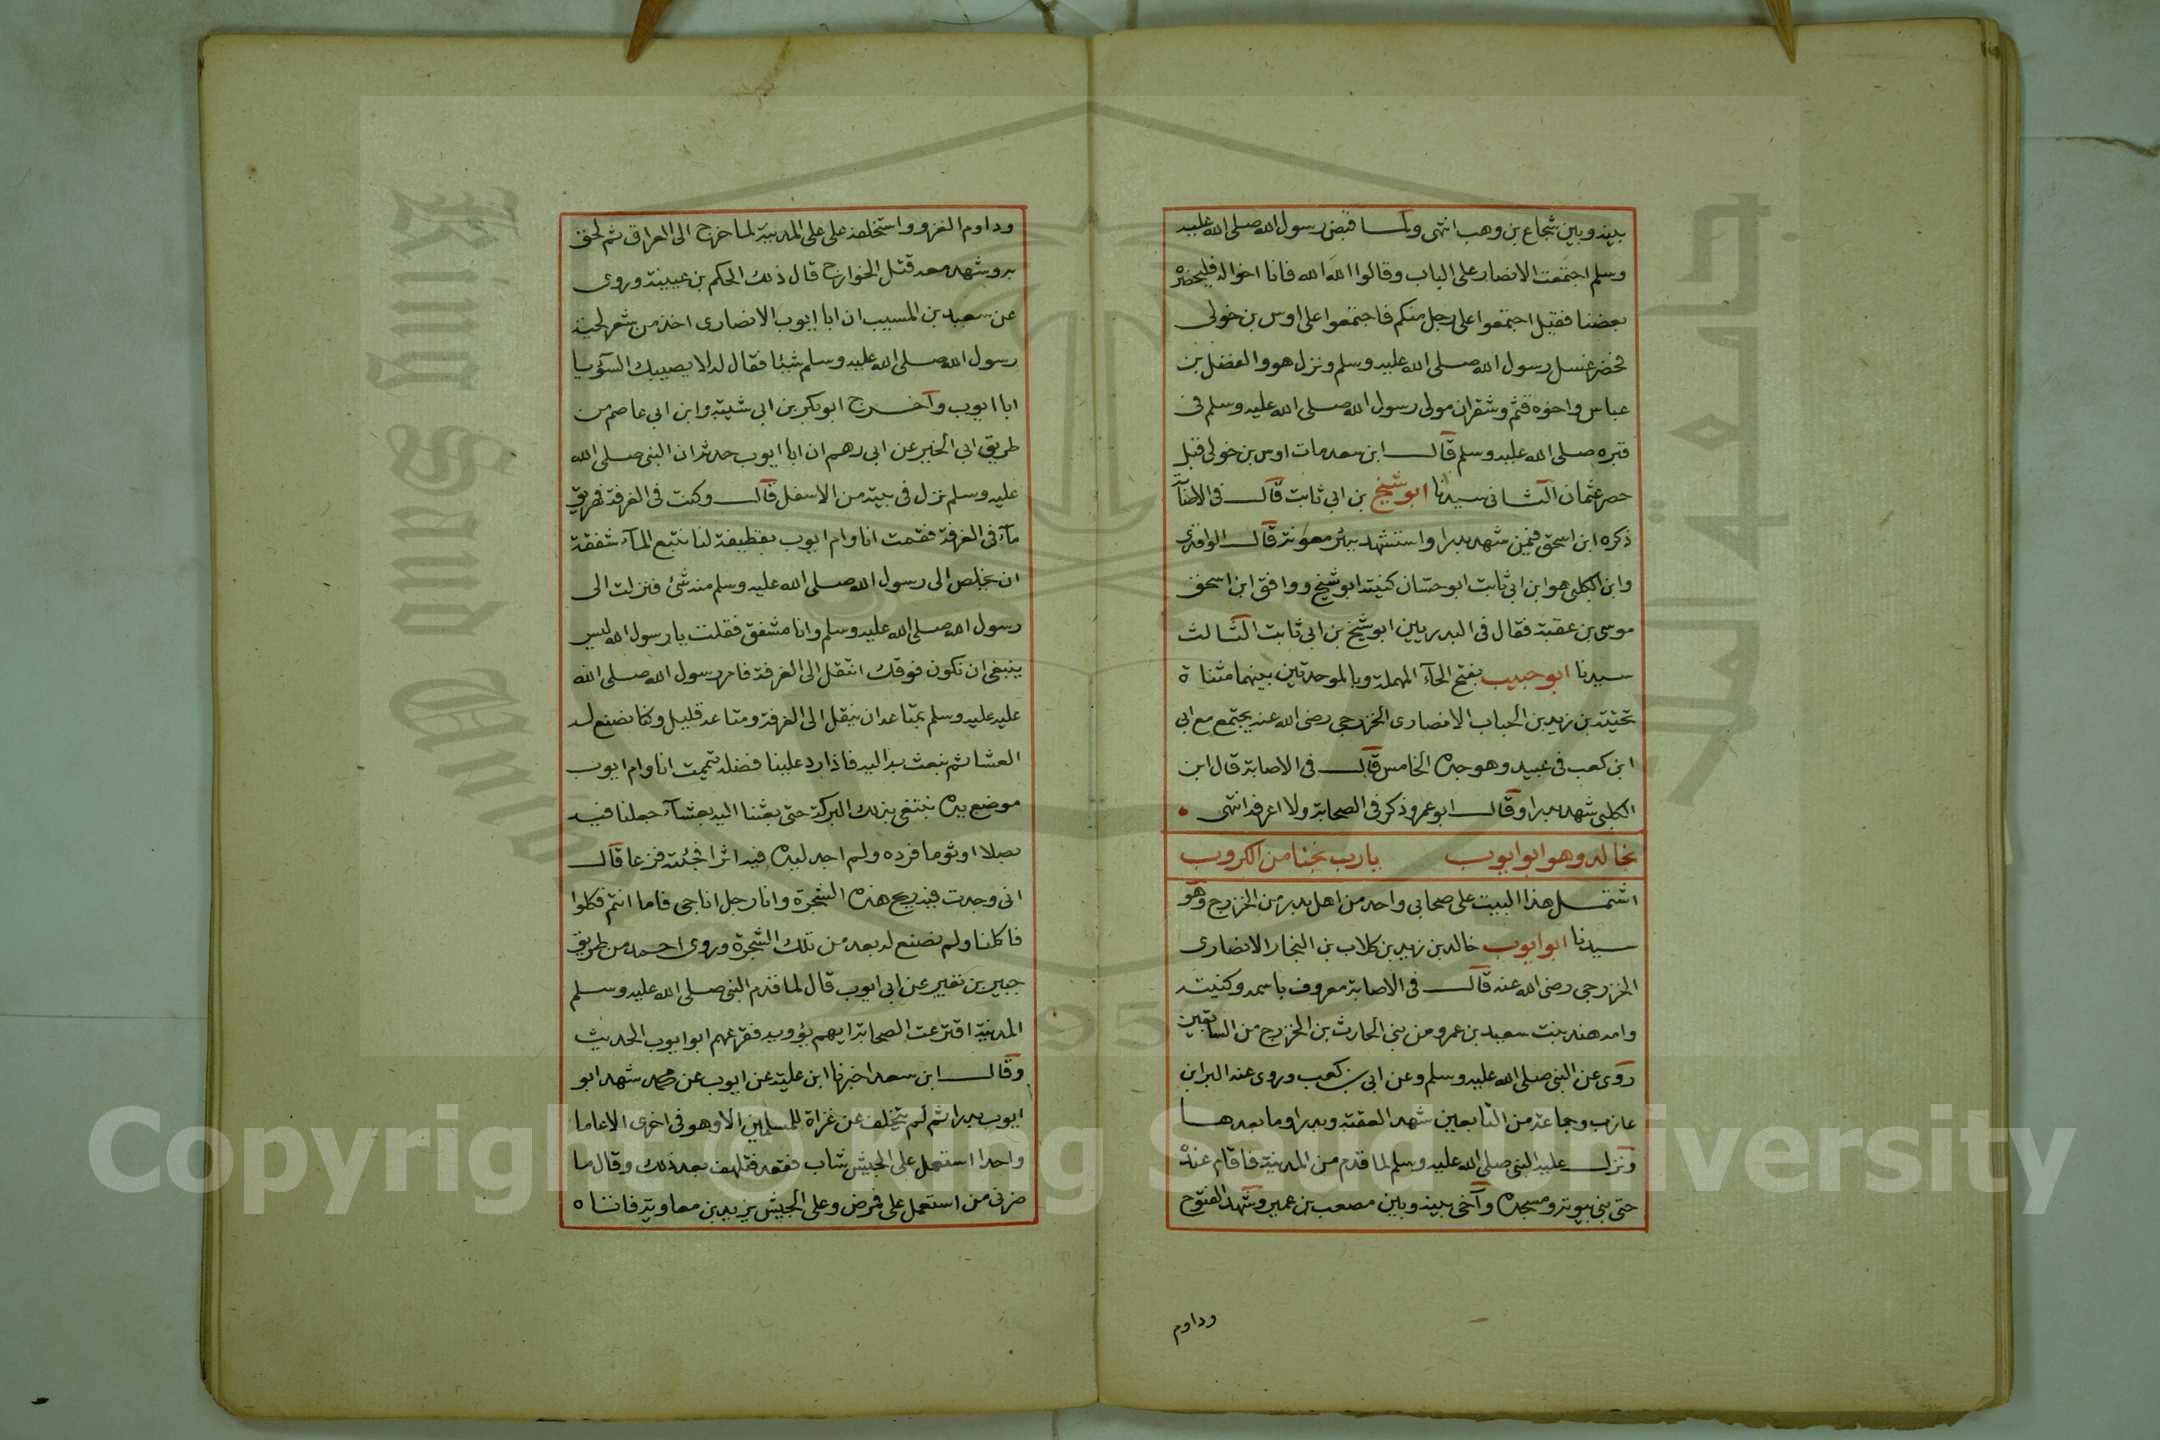 بينه وبين شجاع بن وهب انتهى ولما قبض رسول الله صلى الله عليه
وسلم اجتمعت الانصار على الباب وقالوا الله الله فانا اخواله فليحضره
بعضنا فقيل اجتمعوا على رجل منكم فاجتمعوا على اوس بن خولى
فحضر غسل رسول الله صلى الله عليه وسلم ونزل هو والفضل بن
عباس واخوه قثم وشقران مولى رسول الله صلى الله عليه وسلم فى
قبره صلى الله عليه وسلم قال ابن سعد مات اوس بن خولى قبل
حصر عثمان الثانى سيدنا ابو شيخ بن ابى ثابت قال فى الاصابة
ذكره ابن اسحق فيمن شهد بدرا واستشهد ببئر معونة قال الواقدى
وابن الكلبى هو ابن ابى ثابت ابو حسان كنيته ابو شيخ ووافق ابن اسحق
موسى بن عقبة فقال فى البدريين ابو شيخ بن ابى ثابت الثالث
سيدنا ابو حبيب بفتح الحآء المهملة وبالموحدتين بينهما مثناة
تحتية بن زيد بن الحباب الانصارى الخزرجى رضى الله عنه يجتمع مع ابى
ابن كعب فى عبيد وهو جده الخامس قال فى الاصابة قال ابن
الكلبى شهد بدرا وقال ابو عمر وذكر فى الصحابة ولا اعرفه انتهى
بخالد وهو ابو ايوب يارب نجنا من الكروب
اشتمل هذا البيت على صحابى واحد من اهل بدر من الخزرج وهو
سيدنا ابو ايوب خالد بن زيد بن كلاب بن النجار الانصارى
الخزرجى رضى الله عنه قال فى الاصابة معروف باسمه وكنيته
وامه هند بنت سعيد بن عمرو من بنى الحارث بن الخزرج من السابقين
روى عن النبى صلى الله عليه وسلم وعن ابى بن كعب وروى عنه البرا بن
عازب وجماعة من التابعين شهد العقبة وبدرا وما بعدها
ونزل عليه النبى صلى الله عليه وسلم لما قدم من المدينة فاقام عنده
حتى بنى بيوته ومسجده وآخى بينه وبين مصعب بن عمير وشهد الفتوح
وداوم
وداوم الغزو واستخلفه على على المدينة لما خرج الى العراق ثم لحق
به وشهد معه قتل الخوارج قال ذلك الحكم بن عيينة وروى
عن سعيد بن المسيب ان ابا ايوب الانصارى اخذ من شعر لحية
رسول الله صلى الله عليه وسلم شيئا فقال له لا يصيبك السؤ يا
ابا ايوب وآخرج ابو بكر بن ابى شيبة وابن ابى عاصم من
طريق ابى الخير عن ابى رهم ان ابا ايوب حدثه ان النبى صلى الله
عليه وسلم نزل فى بيته من الاسفل قال وكنت فى الغرفة فهريق
مآء فى الغرفة فقمت انا وام ايوب بقطيفة لنا نتبع المآء شفقة
ان يخلص الى رسول الله صلى الله عليه وسلم منه شئ فنزلت الى
رسول الله صلى الله عليه وسلم وانا مشفق فقلت يا رسول الله ليس
ينبغى ان نكون فوقك انتقل الى الغرفة فامر رسول الله صلى الله
عليه عليه وسلم بمتاعه ان ينقل الى الغرفة ومتاعه قليل وكنا نضنع له
العشا ثم نبعث به اليه فاذا رد علينا فضله تيممت انا وام ايوب
موضع يده نبتغى بذلك البركة حتى بعثنا اليه بعشآء جعلنا فيه
بصلا او ثوما فرده ولم اجد ليده فيه اثرا فجئته فزعا قال
انى وجدت فيه ريح هذه الشجرة وانا رجل اناجى فاما انتم فكلوا
فاكلنا ولم نصنع له بعد من تلك الشجرة وروى احمد من طريق
جبير بن نفير عن ابى ايوب قال لما قدم النبى صلى الله عليه وسلم
المدينة اقترعت الصحابة ايهم يؤويه فقرعهم ابو ايوب الحديث
وقال ابن سعد اخبرنا ابن علية عن ايوب عن محمد شهد ابو
ايوب بدرا ثم لم يتخلف عن غزاة للمسلمين الا وهو فى اخرى الا عاما
واحدا استعمل على الجيش شاب فقعد فتلهف بعد ذلك وقال ما
ضرنى من استعمل على فمرض وعلى الجيش يزيد بن معاوية فاتاه
Copyright © King Saud University